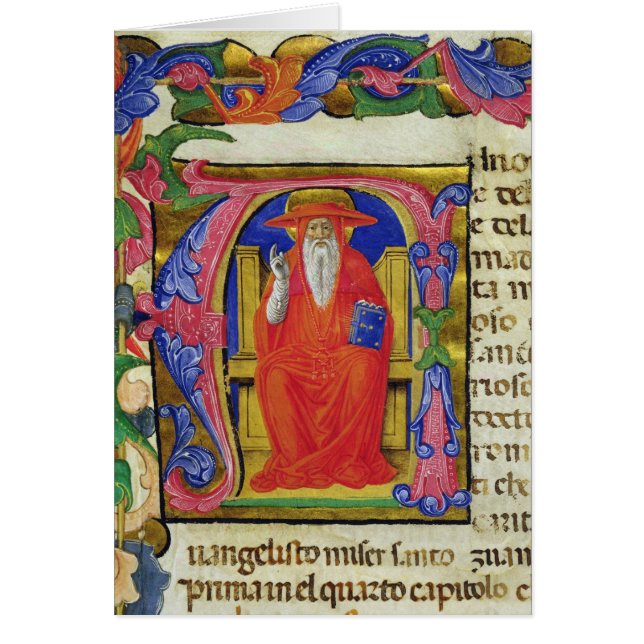 In o
e del
e dela
mad
ta m
oso
sanc
rioso
dect
rom
ti che
carit
uangelisto miser santo zuan
prima in el quarto capitolo e